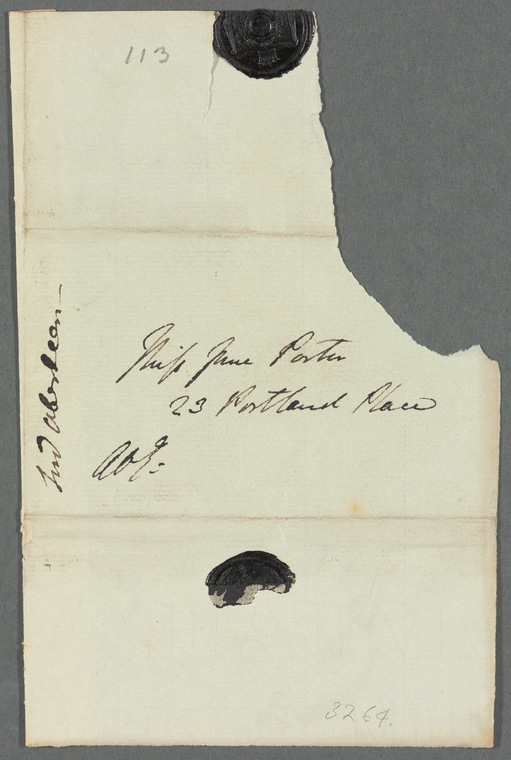 113
Miss Jane Porter
23 Portland Place
Lord Aberdeen
3264.